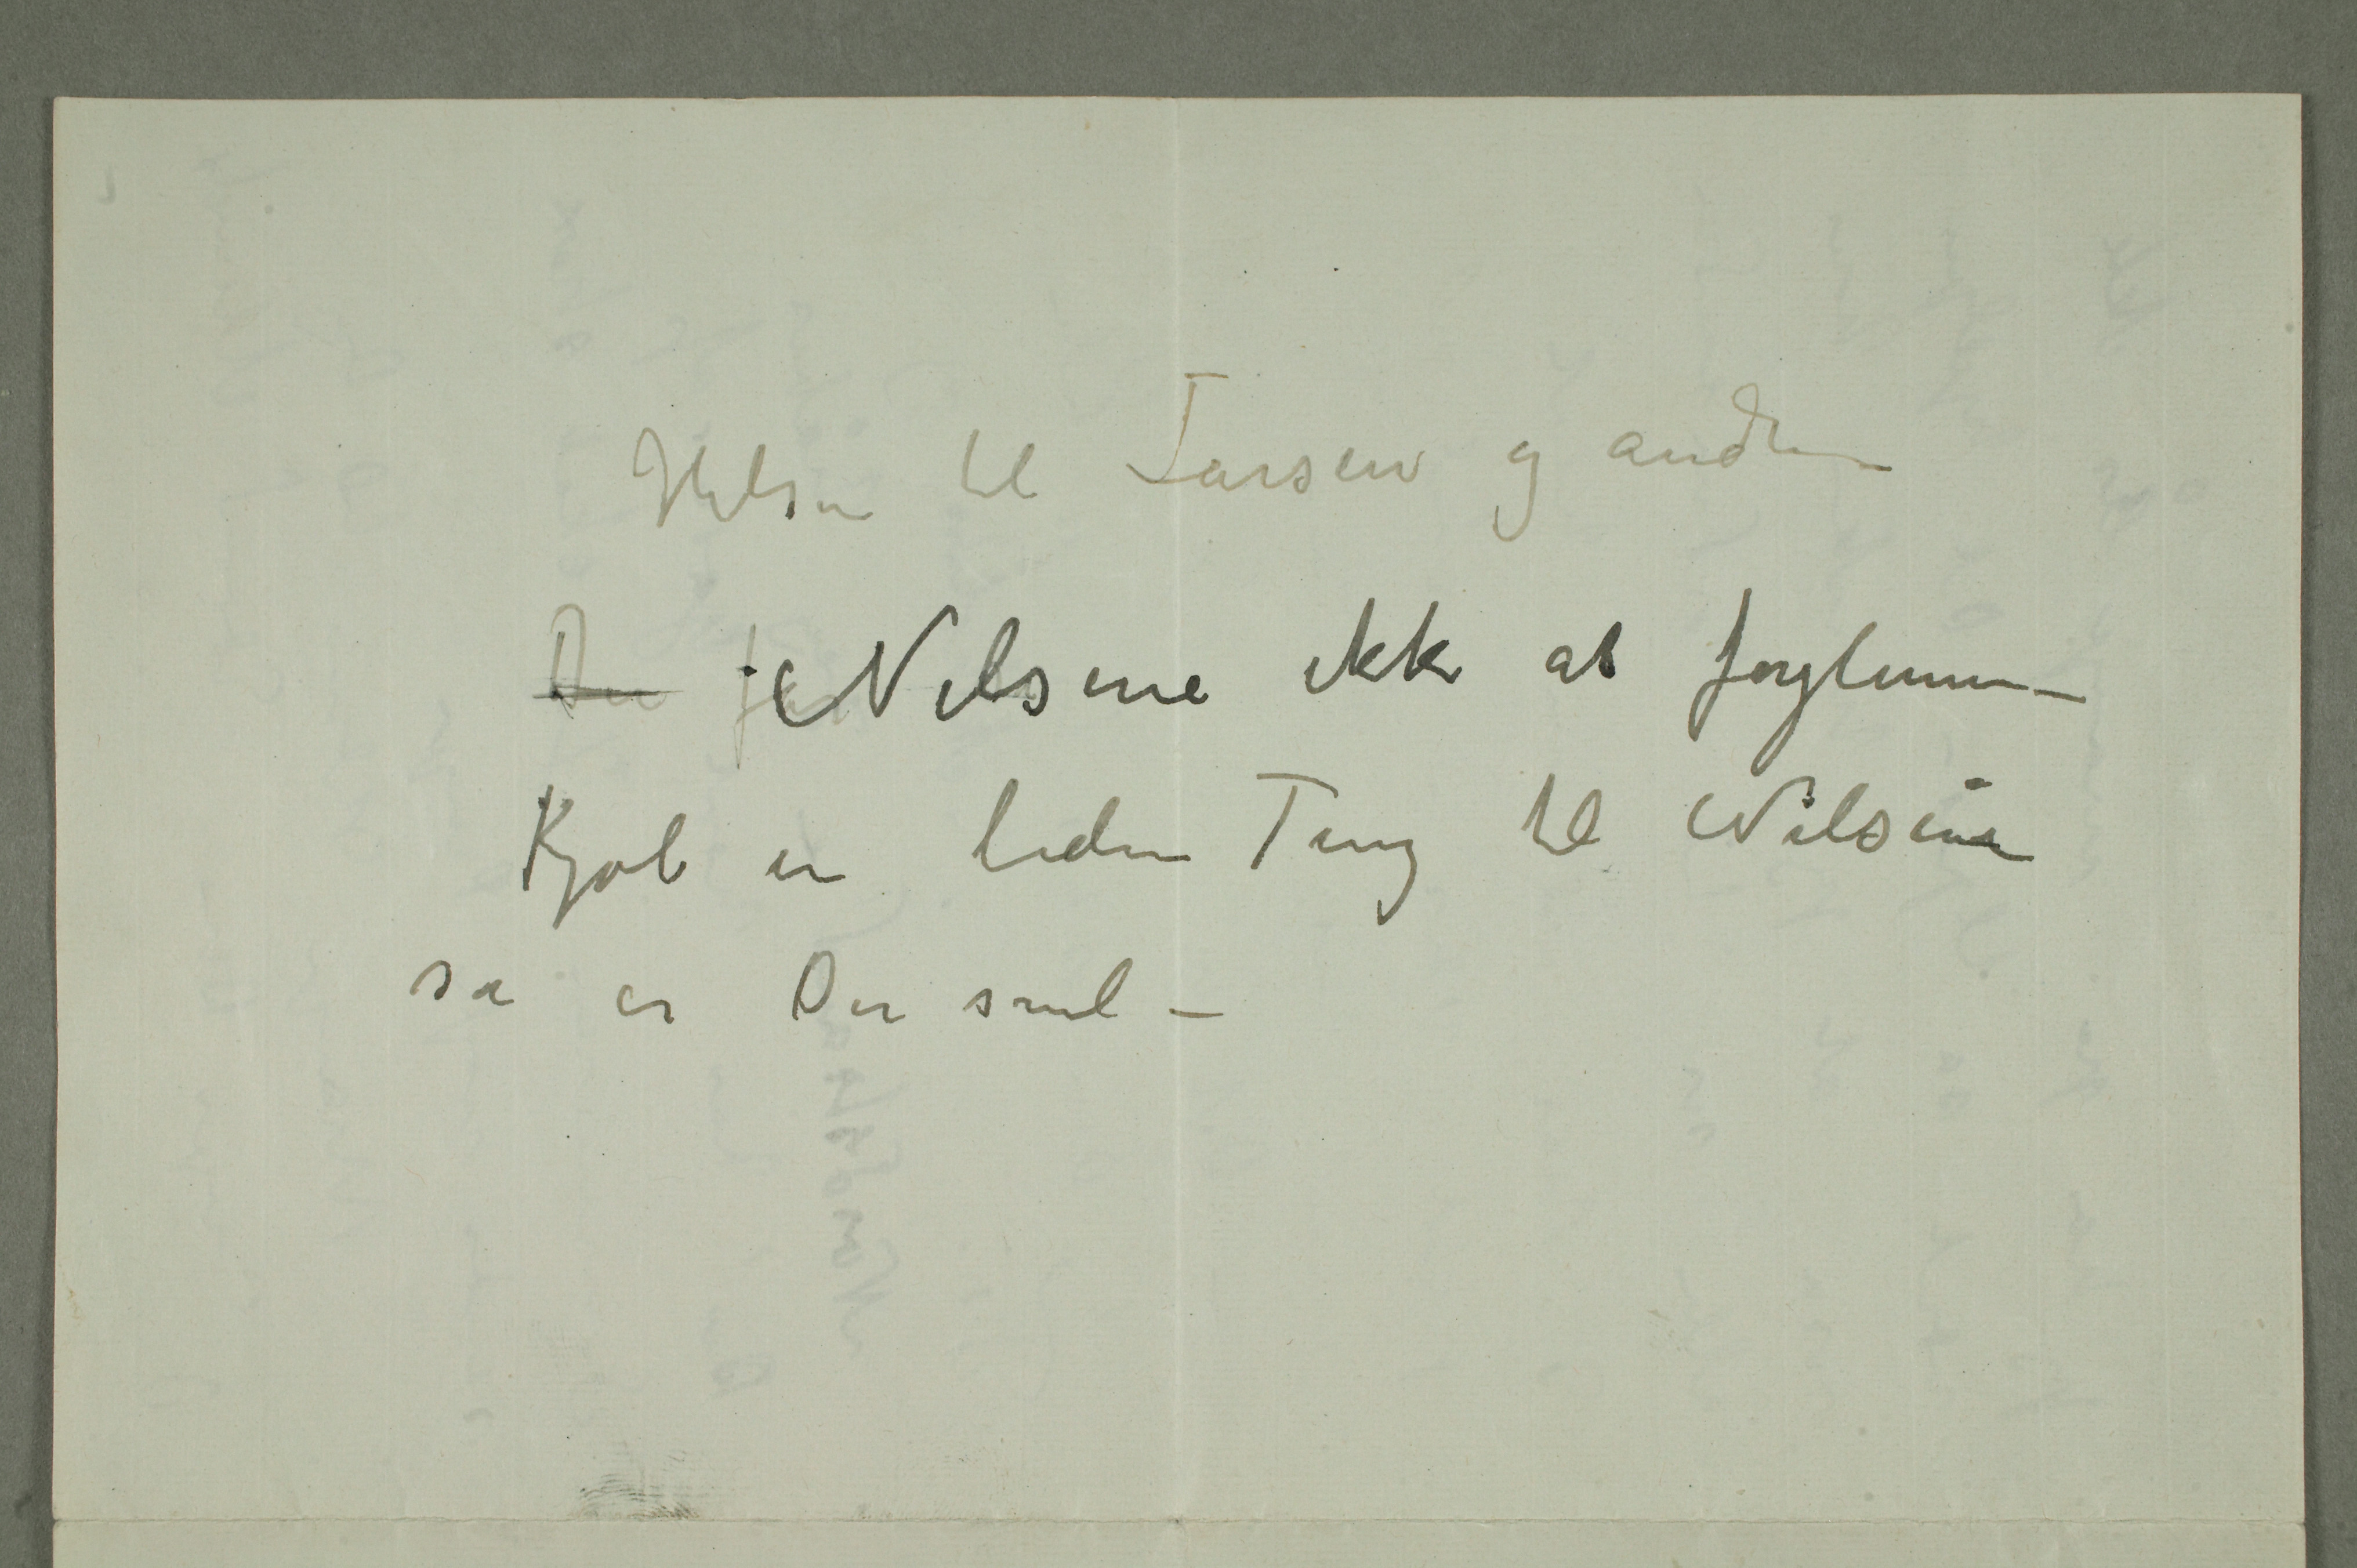 Hilsen til Larsen og andre
Nilsene ikke at forglemme –
Kjøb en liden Ting til Nilsene
så er De snil –